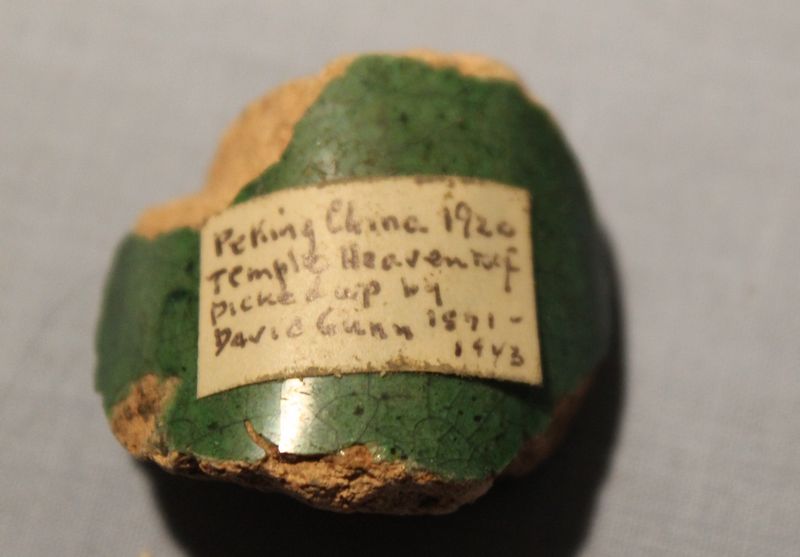 Peking China 1920
Temple Heaven
Picked up by
David Gunn 1871-
1943